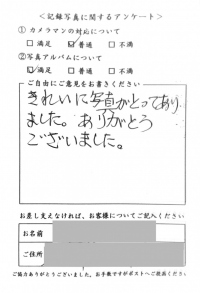 ＜記録写真に関するアンケート＞
① カメラマンの対応について
□ 満足 ☑ 普通 □ 不満
② 写真アルバムについて
☑ 満足 □ 普通 □ 不満
ご自由にご意見をお書きください
きれいに写真がとってあり
ました。ありがとう
ございました。
お差し支えなければ、お客様についてご記入ください
お名前
ご住所
ご協力ありがとうございました。お手数ですがポストへご投函ください